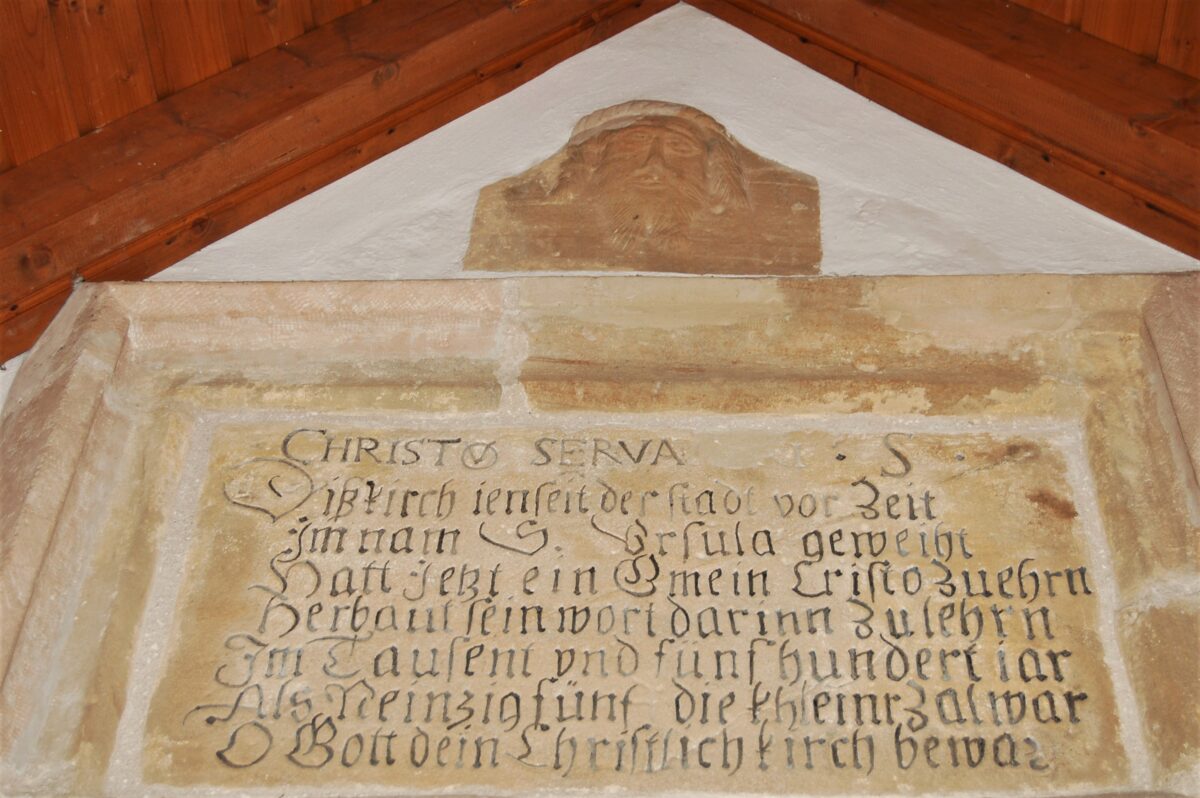 CHRISTO SERVA . S .
Dißkirch ienseit der stadt vor Zeit
Im nam S. Vrsula geweiht
Hatt Jetzt ein Gmein Cristo zuehrn
Herbaut sein wort darinn zu lehrn
Im Tausent vnd fünf hundert iar
Als Neinzig fünf die khleinr zal war
O Gott dein Christlich kirch bewar